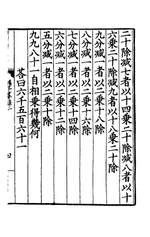 二十除減七者以十四乘二十除減八者以十
六乘二十除減九者以十八乘二十除
九分減一者以二乘十八除
八分減一者以二乘十六除
七分減一者以二乘十四除
六分減一者以二乘十二除
五分減一者以二乘十除
九九八十一自相乘得幾何
答曰六千五百六十一